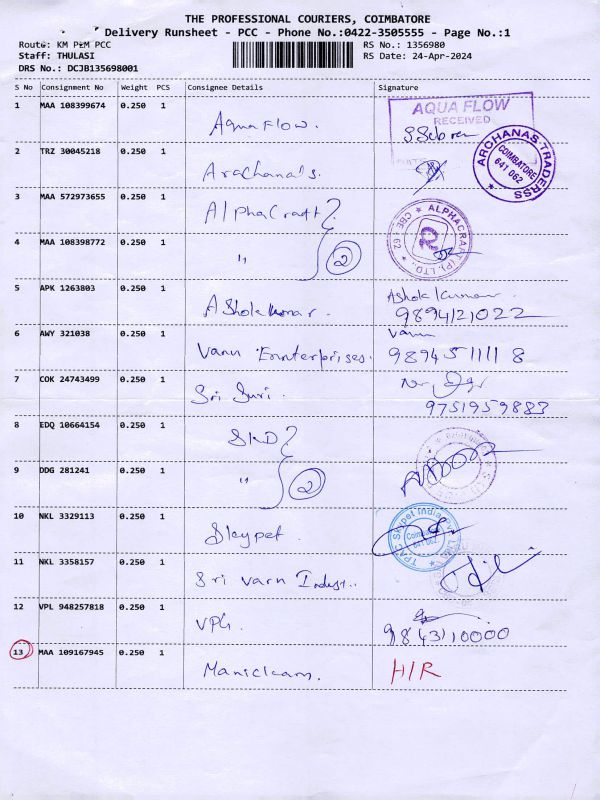 THE PROFESSIONAL COURIERS, COIMBATORE
Delivery Runsheet - PCC - Phone No.:0422-3505555 - Page No.:1
Route: KM P&M PCC RS No.: 1356980
Staff: THULASI RS Date: 24-Apr-2024
DRS No.: DCJB135698001
S No Consignment No Weight PCS Consignee Details Signature
1 MAA 108399674 0.250 1 Aqua Flow. AQUA FLOW
RECEIVED
2 TRZ 30045218 0.250 1 Arachana's. ARCHANAS TRADERSS
COIMBATORE
641 062
3 MAA 572973655 0.250 1 AlphaCraft ALPHACRAFT (P) LTD.,
CBE - 62
4 MAA 108398772 0.250 1 " 2
5 APK 1263803 0.250 1 AShok kumar. Ashok kumar
9894121022
6 AWY 321038 0.250 1 Varun Ennterprises. Varun
9894511118
7 COK 24743499 0.250 1 Sri Suri.
9751959883
8 EDQ 10664154 0.250 1 SKD
9 DDG 281241 0.250 1 " 2
10 NKL 3329113 0.250 1 Skypet. Skypet India
11 NKL 3358157 0.250 1 Sri varn Indust..
12 VPL 948257818 0.250 1 VPG.
9843110000
13 MAA 109167945 0.250 1 Manickam. H/R